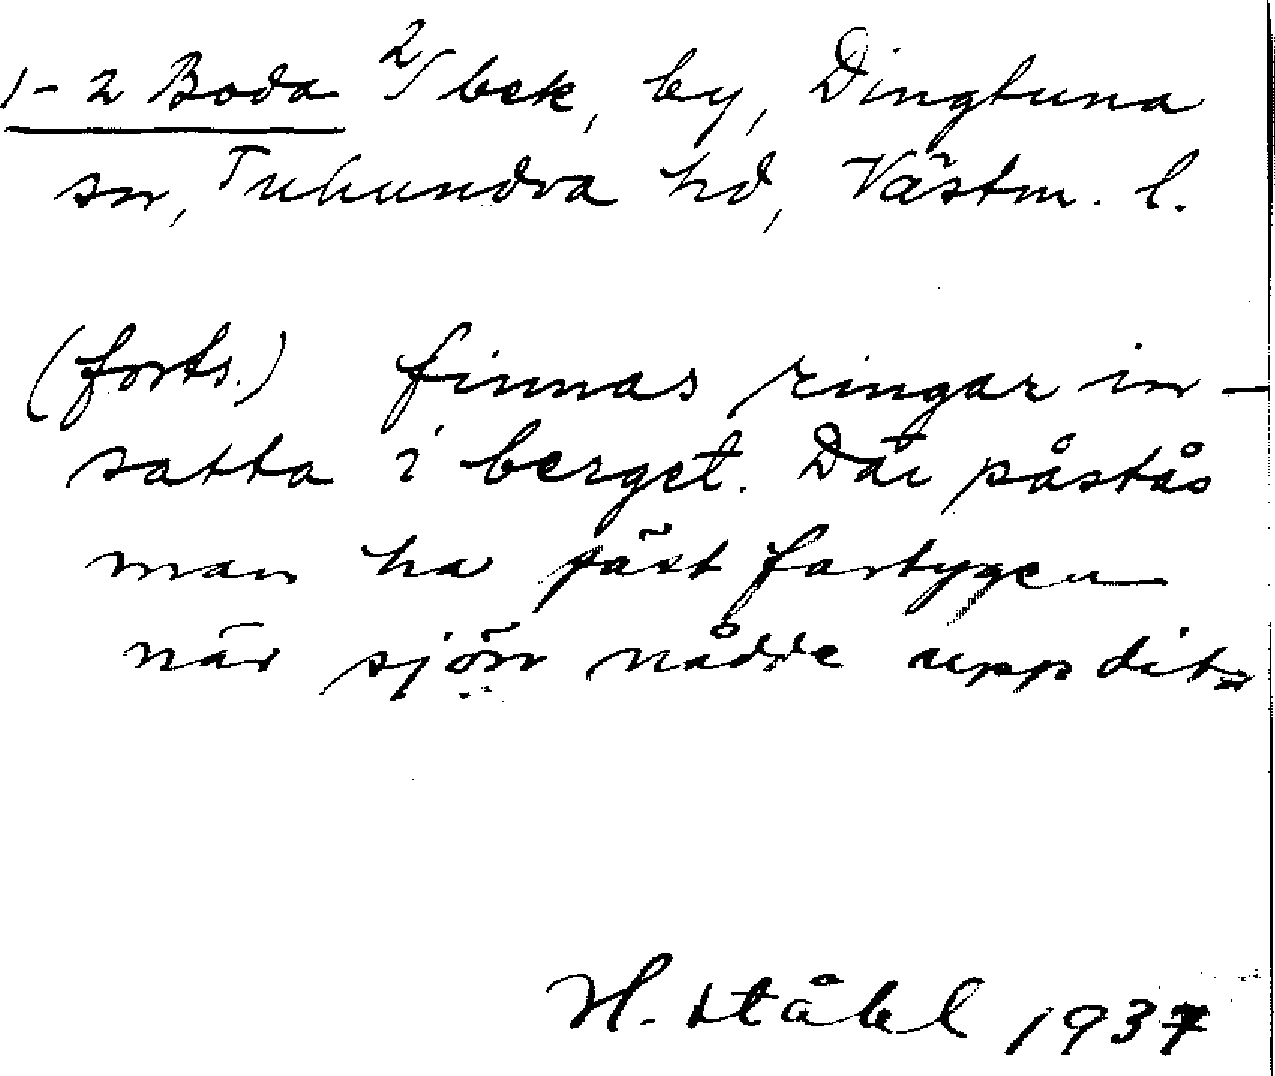 1-2 Boda 2/ bek, by, Dingtuna
sn, Tuhundra hd, Västm. l.
(forts.) finnas ringar in-
satta i berget. Där påstås
man ha fäst fartygen
när sjön nådde upp dit.
H. Ståhl 1937